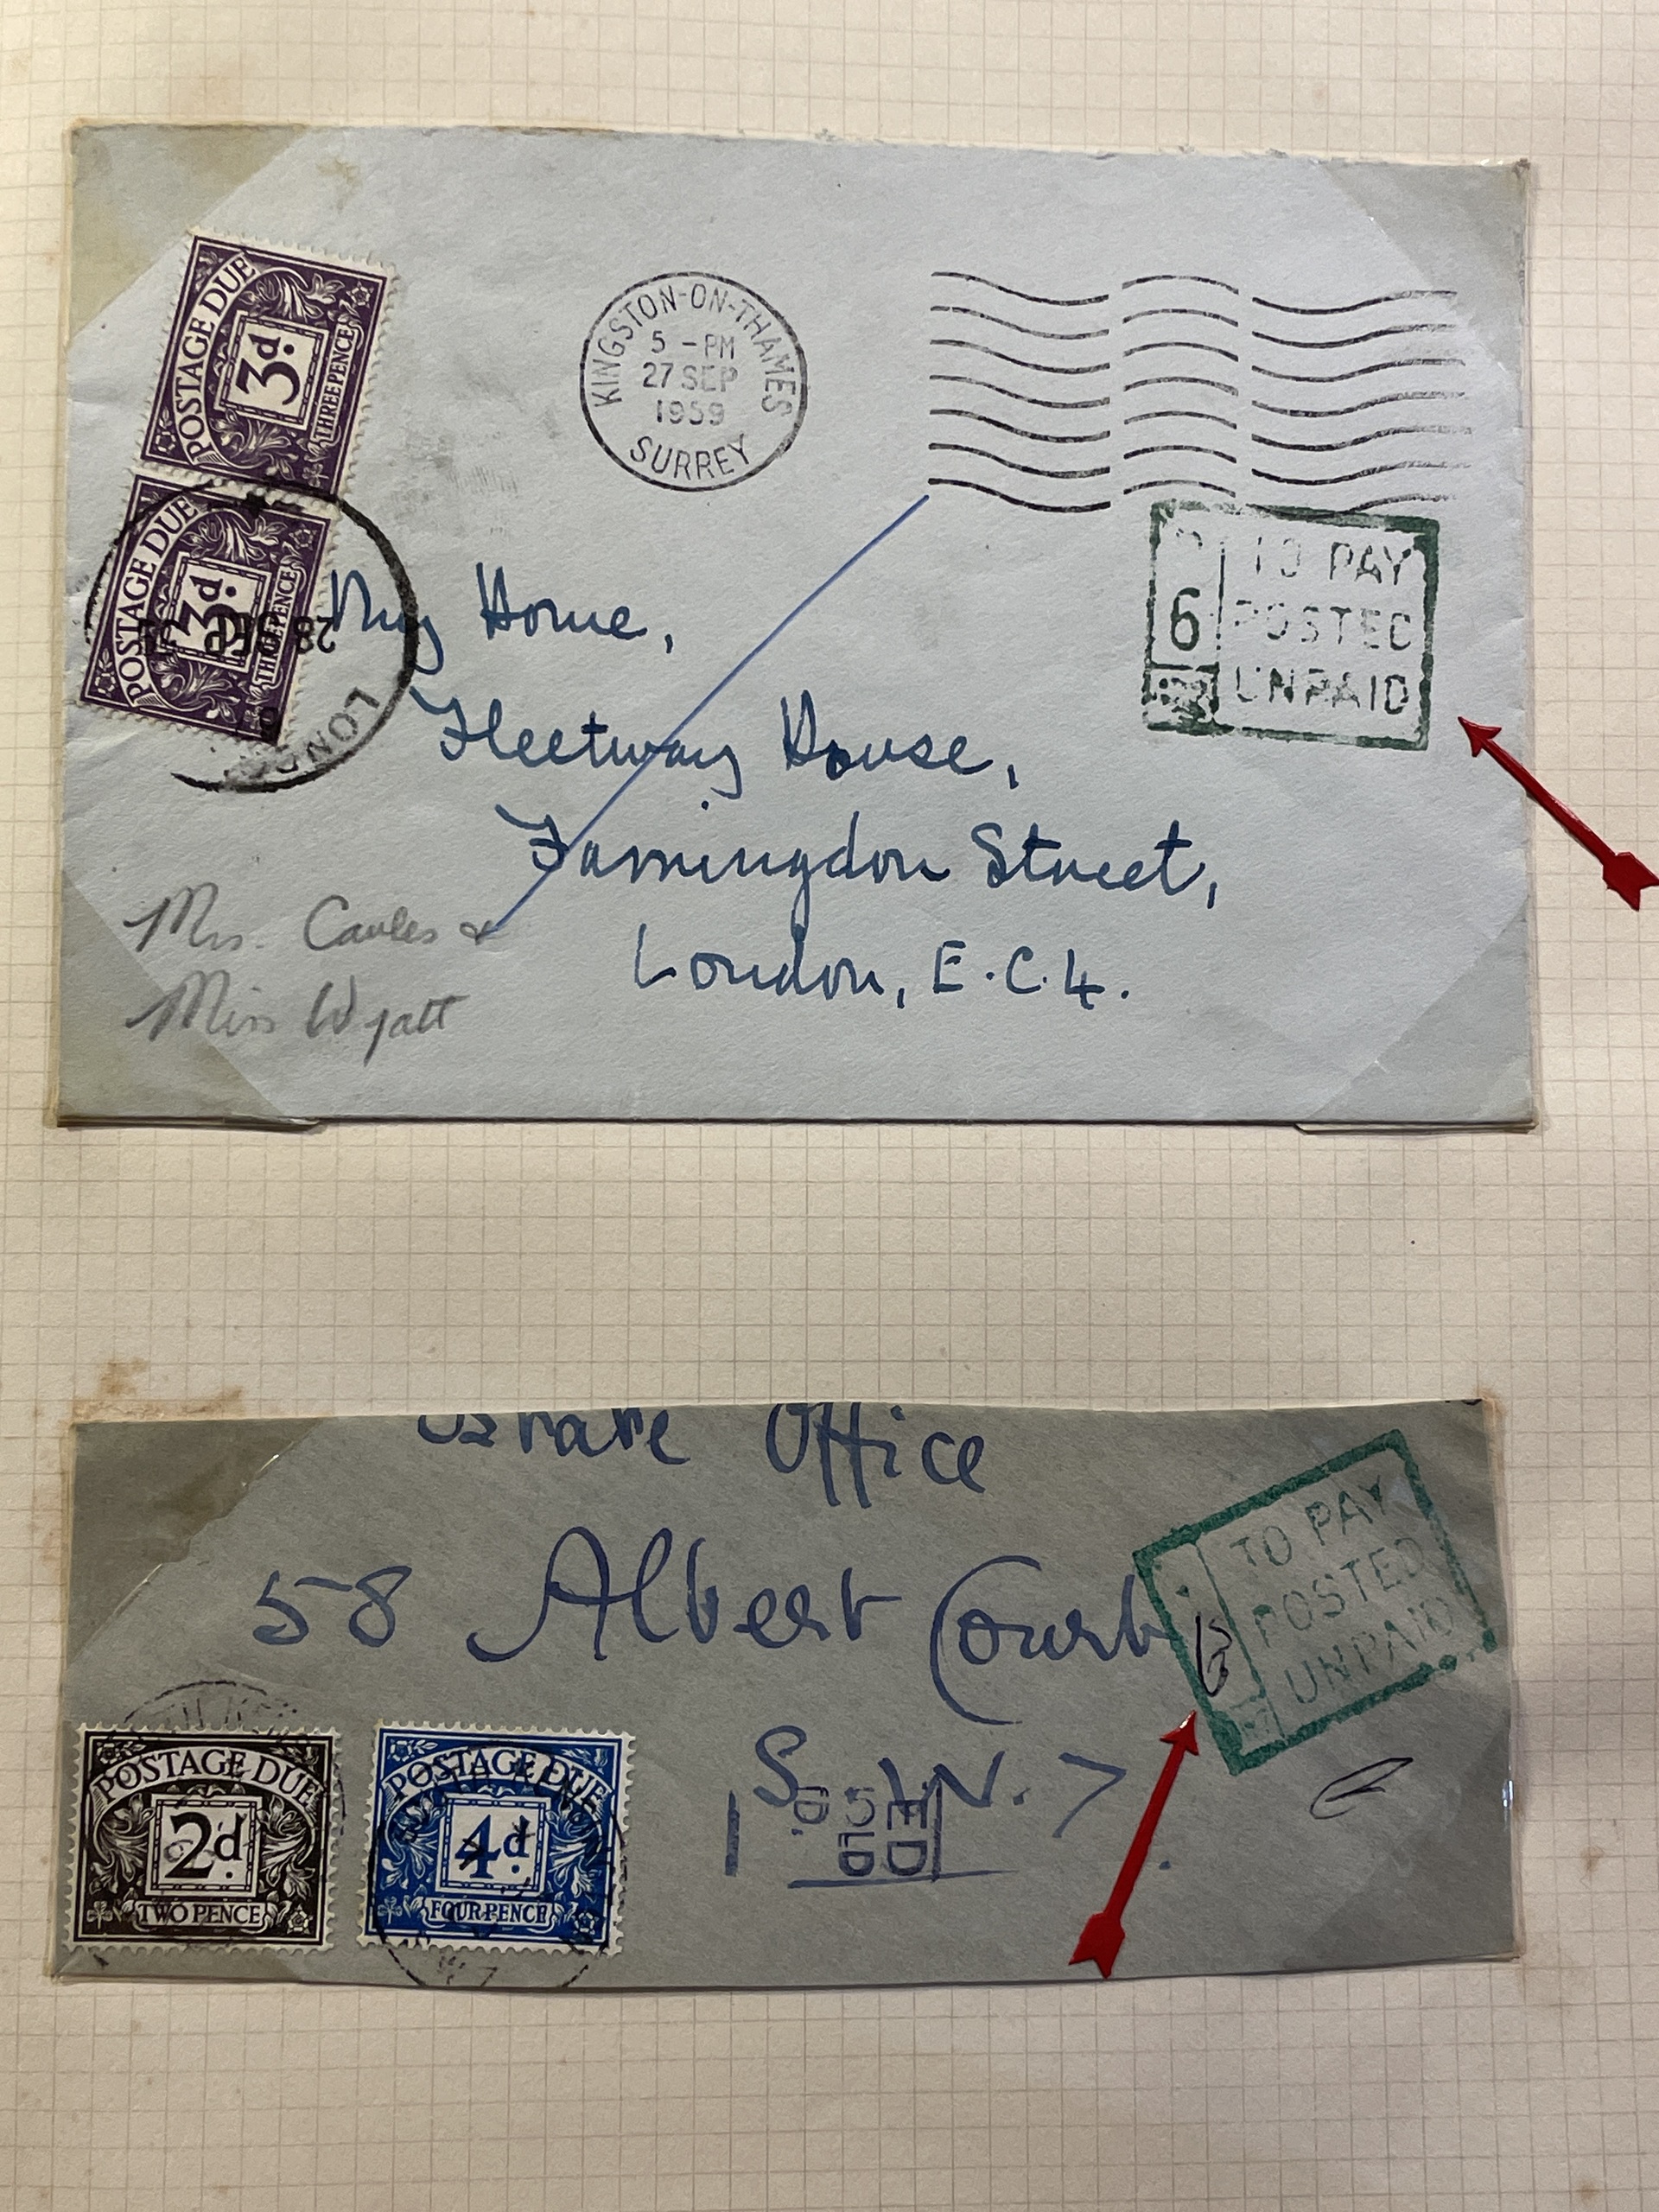 POSTAGE DUE
3d.
THREE PENCE
POSTAGE DUE
3d.
THREE PENCE
KINGSTON-ON-THAMES
5 - PM
27 SEP
1959
SURREY
28 SEP
LONDON
6
TO PAY
POSTED
UNPAID
My Home,
Fleetway House,
Farringdon Street,
London, E.C.4.
Mrs.
Miss Wyatt
Estate Office
58 Albert Court
S.W.7.
6
TO PAY
POSTED
UNPAID
POSTAGE DUE
2d.
TWO PENCE
POSTAGE DUE
4d.
FOUR PENCE